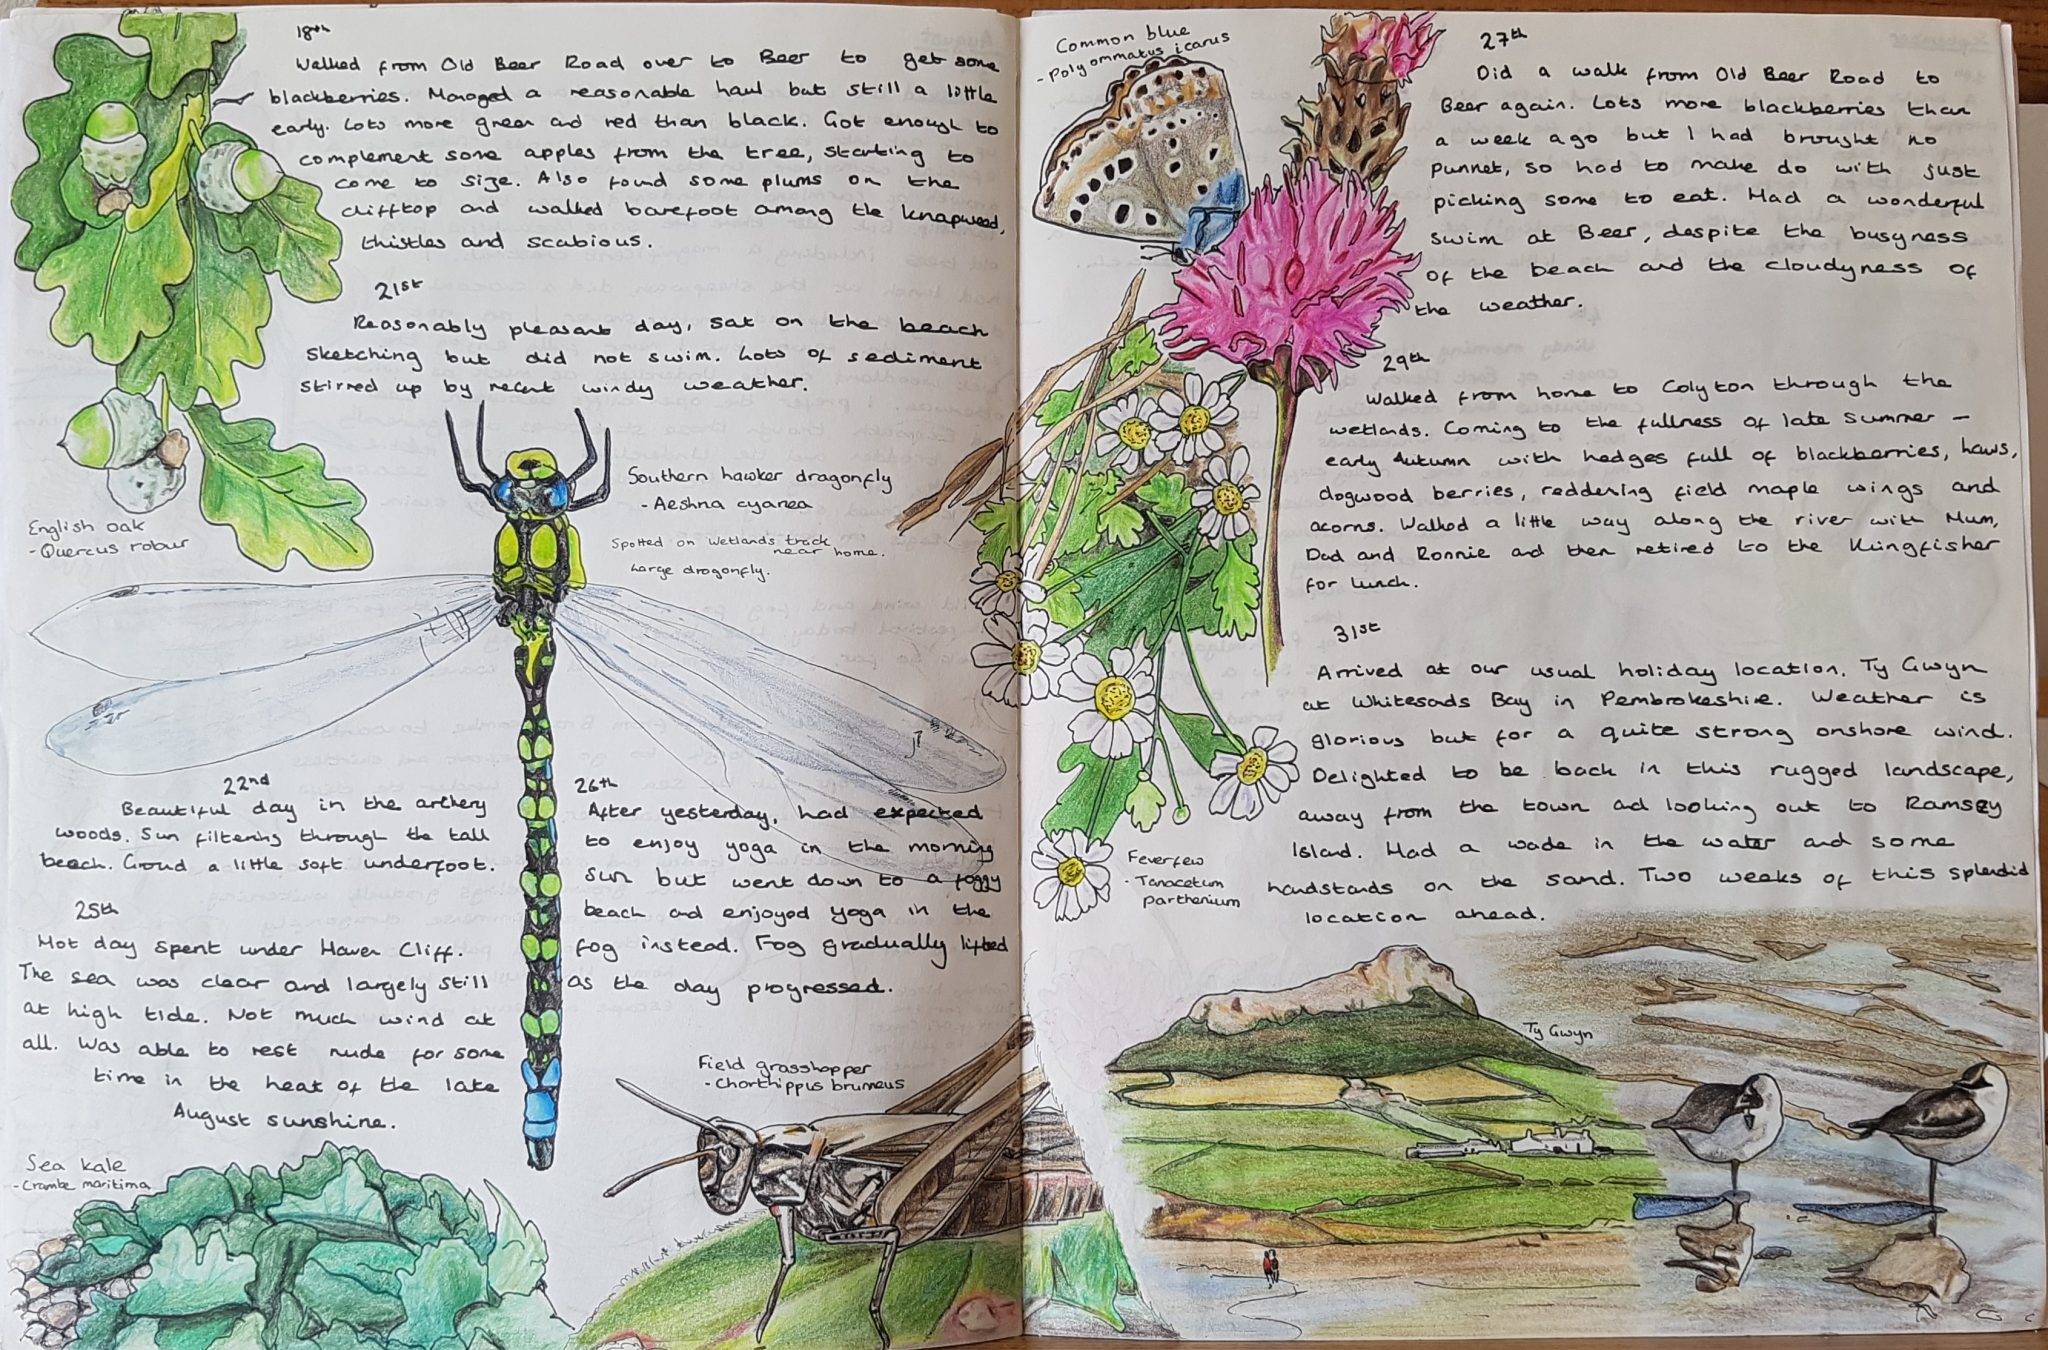 18th
Walked from Old Beer Road over to Beer to get some
blackberries. Managed a reasonable haul but still a little
early. Lots more green and red than black. Got enough to
complement some apples from the tree, starting to
come to size. Also found some plums on the
clifftop and walked barefoot among the knapweed,
thistles and scabious.
21st
Reasonably pleasant day, sat on the beach
sketching but did not swim. Lots of sediment
stirred up by recent windy weather.
English oak
- Quercus robur
Southern hawker dragonfly
- Aeshna cyanea
Spotted on wetlands track
near home.
Large dragonfly.
22nd
Beautiful day in the archery
woods. Sun filtering through the tall
beech. Groud a little soft underfoot.
25th
Hot day spent under Haven Cliff.
The sea was clear and largely still
at high tide. Not much wind at
all. Was able to rest nude for some
time in the heat of the late
August sunshine.
Sea kale
- Crambe maritima
26th
After yesterday, had expected
to enjoy yoga in the morning
sun but went down to a foggy
beach and enjoyed yoga in the
fog instead. Fog gradually lifted
as the day progressed.
Field grasshopper
- Chorthippus brunneus
Common blue
- Polyommatus icarus
27th
Did a walk from Old Beer Road to
Beer again. Lots more blackberries than
a week ago but I had brought no
punnet, so had to make do with just
picking some to eat. Had a wonderful
swim at Beer, despite the busyness
of the beach and the cloudyness of
the weather.
29th
Walked from home to Colyton through the
wetlands. Coming to the fullness of late summer –
early Autumn with hedges full of blackberries, haws,
dogwood berries, reddening field maple wings and
acorns. Walked a little way along the river with Mum,
Dad and Ronnie and then retired to the Kingfisher
for lunch.
31st
Arrived at our usual holiday location, Ty Gwyn
at Whitesads Bay in Pembrokeshire. Weather is
glorious but for a quite strong onshore wind.
Delighted to be back in this rugged landscape,
away from the town and looking out to Ramsey
Island. Had a wade in the water and some
handstands on the sand. Two weeks of this splendid
location ahead.
Feverfew
- Tanacetum
parthenium
Ty Gwyn